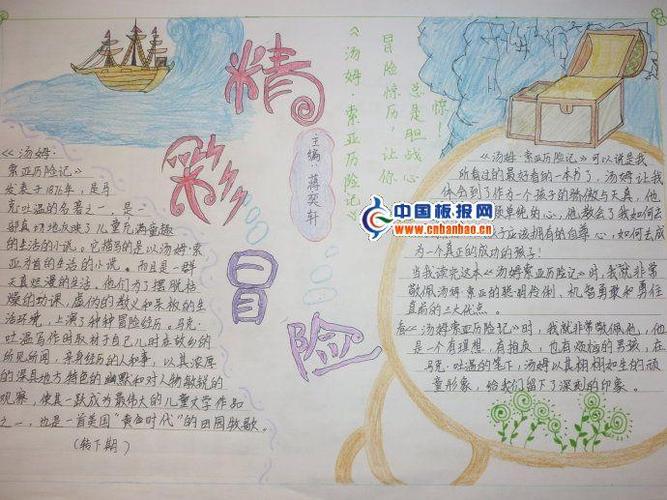 精彩冒险
主编：蒋奕轩
《汤姆·索亚历险记》
冒险惊历，让你
总是胆战心
惊！
中国板报网
www.cnbanbao.cn
《汤姆·
索亚历险记》
发表于1876年，是马
克·吐温的名著之一，是一
部真切地反映了儿童充满童趣
的生活的小说。它描写的是以汤姆·索
亚为首的生活的小说。而且是一群
天真烂漫的生活，他们为了摆脱枯
燥的功课、虚伪的教义和呆板的生
活环境，上演了种种冒险经历，马克·
吐温写作时取材于自己儿时在故乡的
所见所闻，亲身经历的人和事，以其浓厚
的深具地方特色的幽默和对人物敏锐的
观察，使其一跃成为最伟大的儿童文学作品
之一，也是一首美国“黄金时代”的田园牧歌。
（转下期）
《汤姆·索亚历险记》可以说是我
所看过的最好看的一本书了，汤姆让我
体会到了作为一个孩子的骄傲与天真，他
单纯的心，他教会了我如何去
应该拥有的自尊心，如何去成
为一个真正的成功的孩子！
当我读完这本《汤姆索亚历险记》时，我就非常
敬佩汤姆·索亚的聪明伶俐、机智勇敢和勇往
直前的三大优点。
看《汤姆索亚历险记》时，我就非常敬佩他，他
是一个有理想，有抱负，也有烦恼的男孩，在
马克·吐温的笔下，汤姆以其栩栩如生的顽
童形象，给我们留下了深刻的印象。